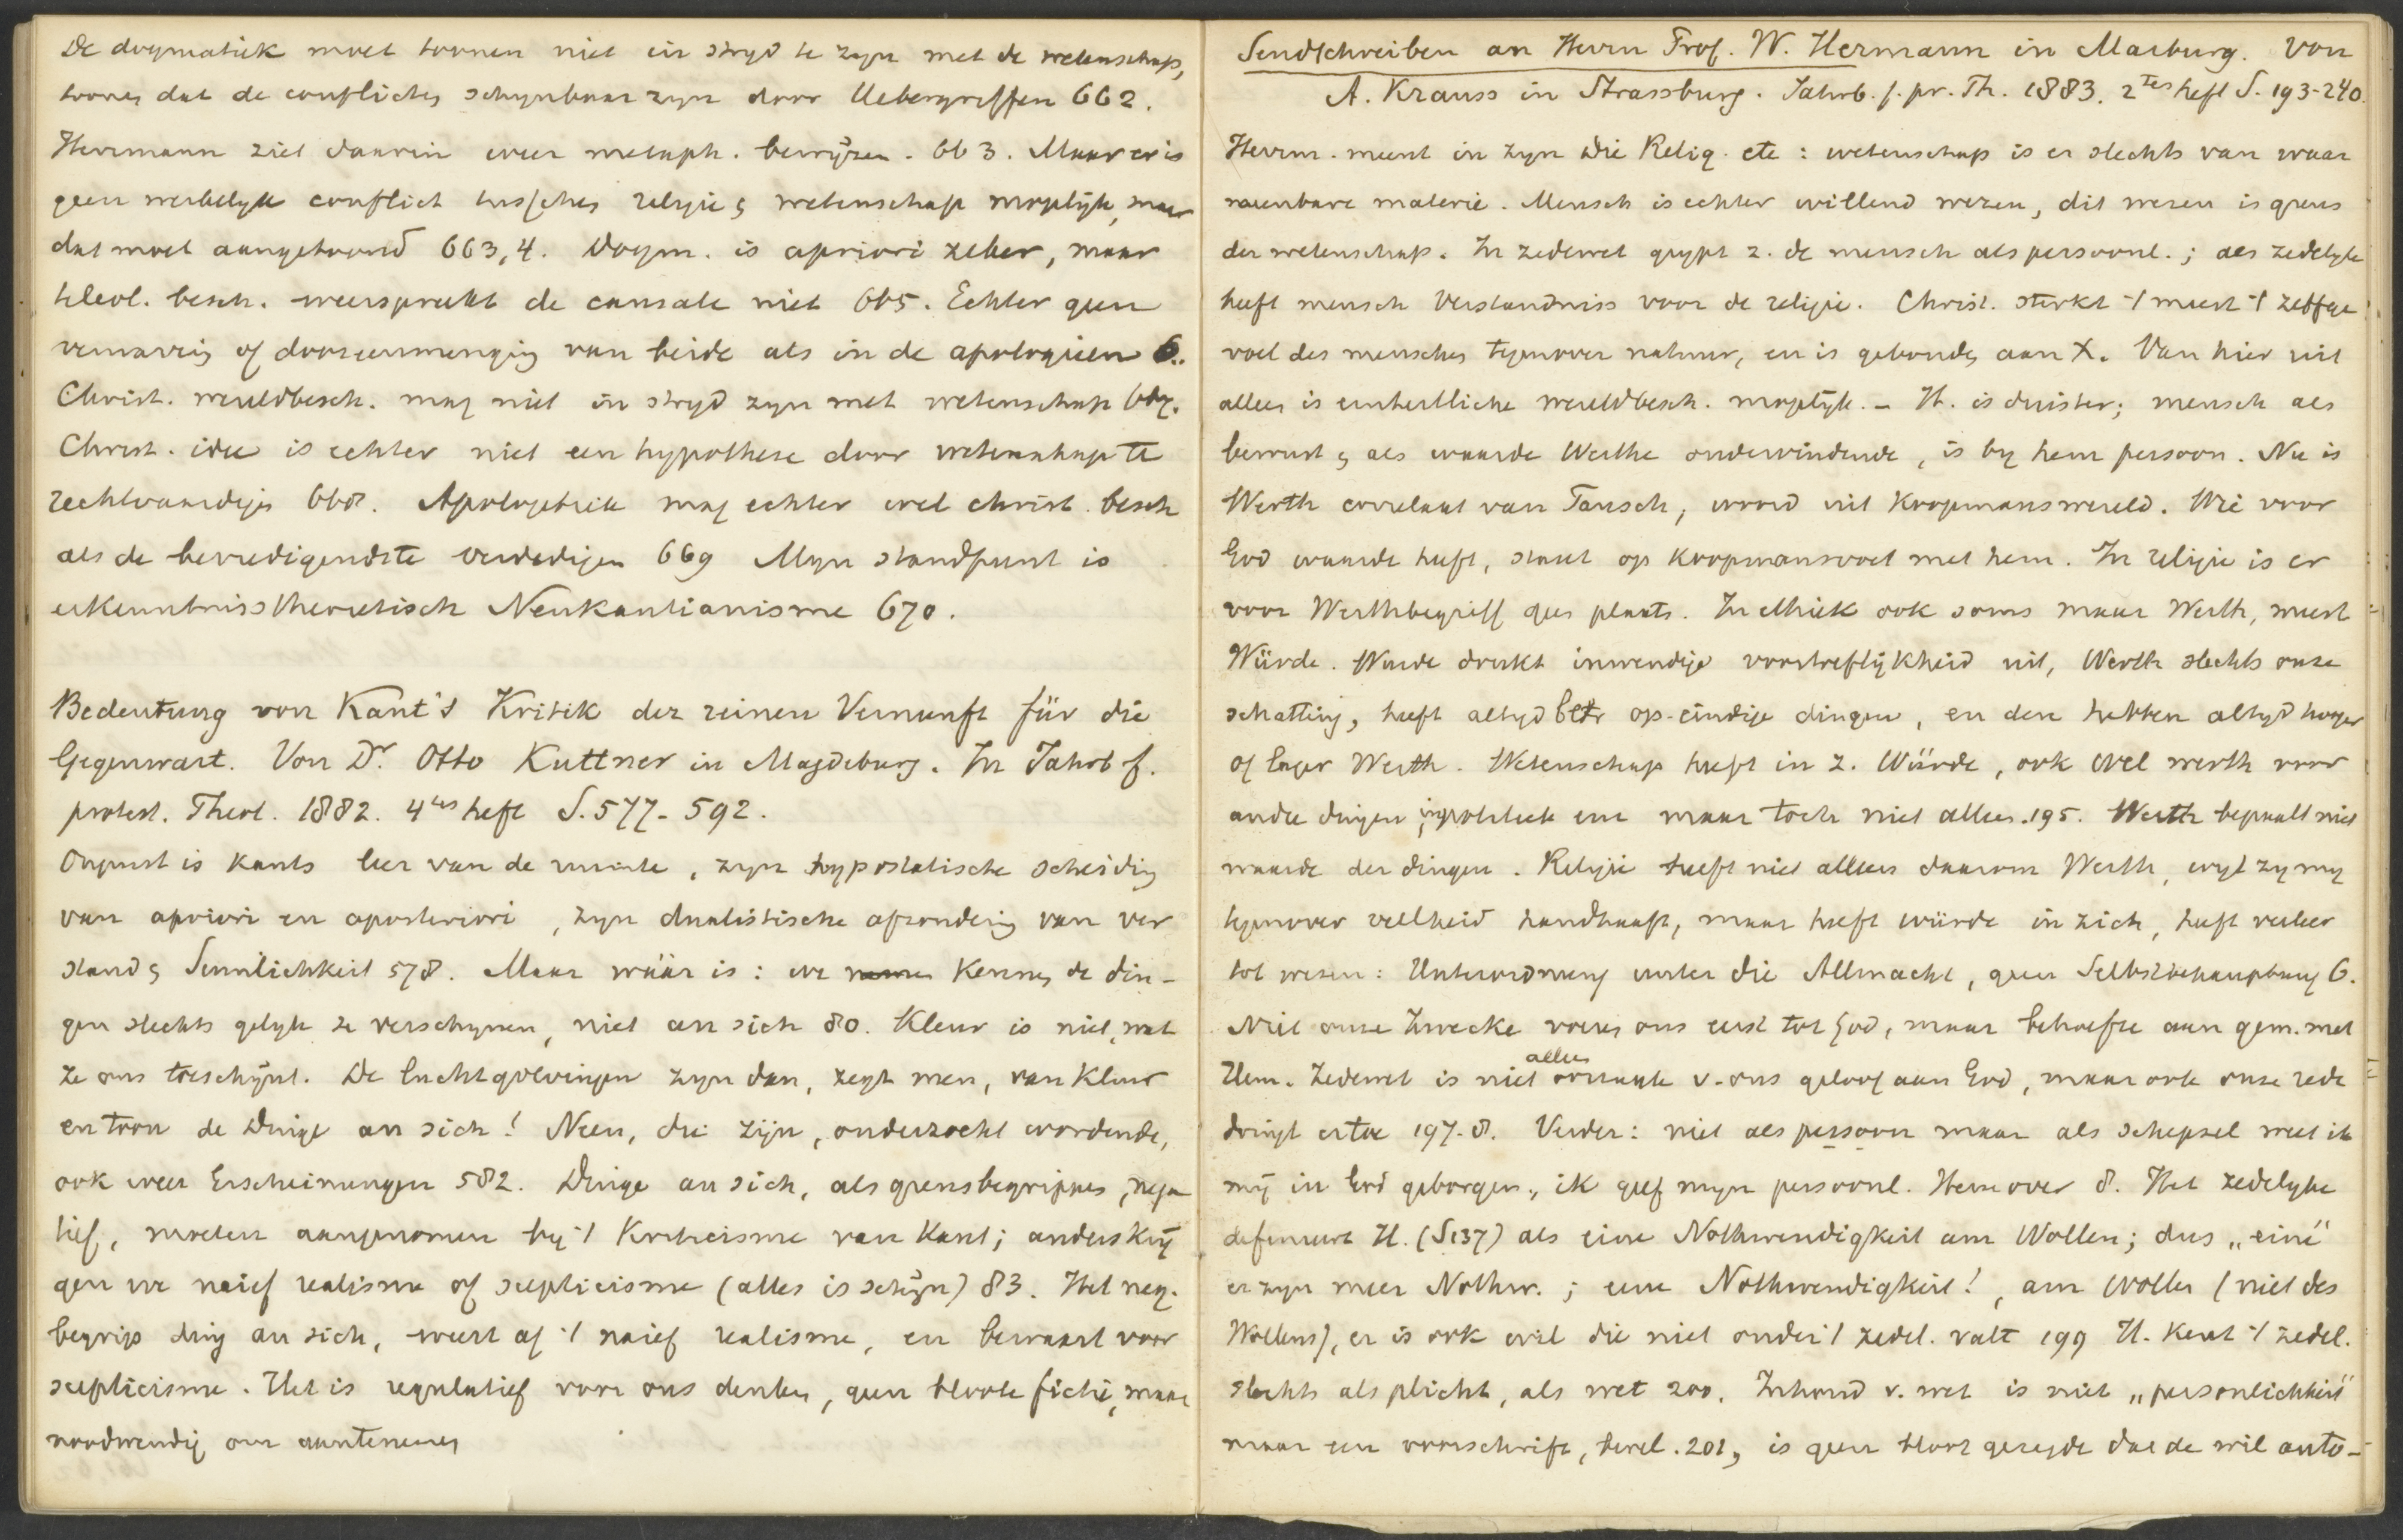 De dogmatiek moet toonen niet in stryd te zyn met de wetenschap,
toonen dat de conflicten schynbaar zyn door Uebergriffen 662.
Herrmann ziet daarin weer metaph. bewijzen. 663. Maar er is
geen werkelyk conflict tusschen religie & wetenschap mogelijk, maar
dat moet aangetoond 663,4. Dogm. is apriori zeker, maar
teleol. besch. weerspreekt de causale niet 665. Echter geen
verwarring of dooreenmenging van beide als in de apologieen 6..
Christ. wereldbesch. mag niet in stryd zyn met wetenschap 667.
Christ. idee is echter niet een hypothese door wetenschap te
rechtvaardigen 668. Apologetiek mag echter wel christ. besch
als de bevredigendste verdedigen 669 Myn standpunt is
erkenntnisstheoretisch Neukantianisme 670.
Bedeutung von Kant's Kritik der reinen Vernunft für die
Gegenwart. Von Dr. Otto Kuttner in Magdeburg. In Jahrb f.
protest. Theol. 1882. 4tes heft S. 577-592.
Onjuist is Kants leer van de ruimte, zyn hypostatische scheiding
van apriori en aposteriori, zyn dualistische afzondering van ver
stand & Sinnlichkeit 578. Maar wäär is: we kennen de din-
gen slechts gelyk ze verschynen, niet an sich 80. Kleur is niet, wat
ze ons toeschijnt. De luchtgolvingen zyn dan, zegt men, van kleur
en toon de Dinge an sich! Neen, die zijn, onderzocht wordende,
ook weer Erscheinungen 582. Dinge an sich, als grensbegrippen, nega
tief, moeten aangenomen by 't Kriticisme van Kant; anders krij
gen we naief realisme of scepticisme (alles is schijn) 83. Het neg.
begrip ding an sich, weert af 't naief realisme, en bewaart voor
scepticisme. Het is regulatief voor ons denken, geen bloote fictie, maar
noodwendig om aantenemen
Sendschreiben an Herrn Prof. W. Hermann in Marburg. Von
A. Krauss in Strassburg. Jahrb. f. pr. Th. 1883. 2tes heft S. 193-240.
Herrm. meent in zyn Die Relig. etc: wetenschap is er slechts van waar
neembare materie. Mensch is echter willend wezen, dit wezen is grens
der wetenschap. In zedewet grypt z. de mensch als persoonl.; als zedelyk
heeft mensch Verständniss voor de religie. Christ. sterkt 't meest 't zelfge
voel des menschen tegenover natuur, en is gebonden aan X. Van hier uit
alleen is einheitliche wereldbesch. mogelijk. - H. is duister; mensch als
bewust & als waarde Werthe ondervindende, is by hem persoon. Nu is
Werth correlaat van Tausch, woord uit Koopmanswereld. Wie voor
God waarde heeft, staat op koopmansvoet met hem. In religie is er
voor Werthbegriff geen plaats. In ethiek ook soms maar Werth, meest
Würde. Würde drukt inwendige voortreflijkheid uit, Werth slechts onze
schatting, heeft altyd betr op eindige dingen, en deze hebben altyd hooger
of lager Werth. Wetenschap heeft in z. Würde, ook wel werth voor
andre dingen, industrie enz maar toch niet alleen. 195. Werth bepaalt niet
waarde der dingen. Religie heeft niet alleen daarom Werth, wyl zy my
tegenover veelheid handhaaft, maar heeft würde in zich, heeft veeleer
tot wezen: Unterordnung unter die Allmacht, geen Selbstbehauptung 6.
Niet onze Zwecke voeren ons eerst tot God, maar behoefte aan gem. met
Hem. Zedewet is niet alleen oorzaak v. ons geloof aan God, maar ook onze rede
dringt ertoe 197-8. Verder: niet als persoon maar als schepsel weet ik
mij in God geborgen, ik geef myn persoonl. Hem over 8. Het zedelyke
definieert H. (S137) als eine Nothwendigkeit am Wollen; dus „eine"
er zyn meer Nothw.; eene Nothwendigkeit!, am Wollen (niet des
Wollens), er is ook wil die niet onder 't zedel. valt 199 H. kent 't zedel.
slechts als plicht, als wet 200. Inhoud v. wet is niet „persönlichkeit"
maar een voorschrift, bevel. 201, is geen bloot gezegde dat de wil auto-